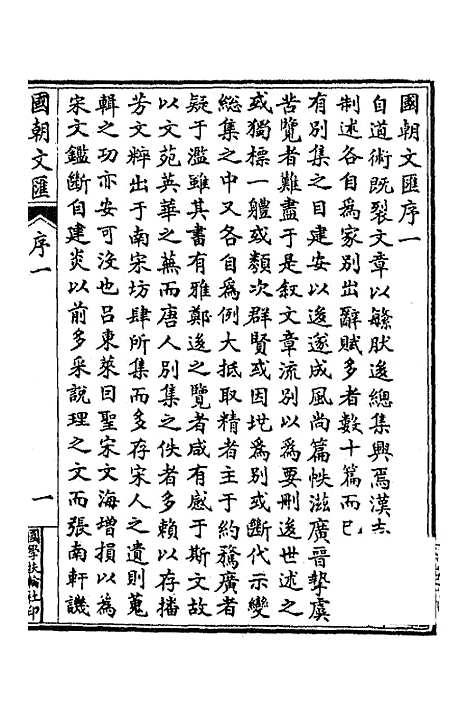 國朝文匯序一
自道術既裂文章以繁肰後總集興焉漢志
制述各自爲家别出辭賦多者數十篇而已
有别集之目建安以後遂成風尚篇帙滋廣晉摯虞
苦覽者難盡于是叙文章流别以爲要刪後世述之
或獨標一軆或類次群賢或因墬爲别或斷代示變
總集之中又各自爲例大抵取精者主于約騖廣者
疑于濫雖其書有雅鄭後之覽者咸有感于斯文故
以文苑英華之蕪而唐人别集之佚者多賴以存播
芳文粹出于南宋坊肆所集而多存宋人之遺則蒐
輯之功亦安可没也吕東萊曰聖宋文海增損以爲
宋文鑑斷自建炎以前多采說理之文而張南軒譏
國朝文匯
序一
一
國學扶輪社印